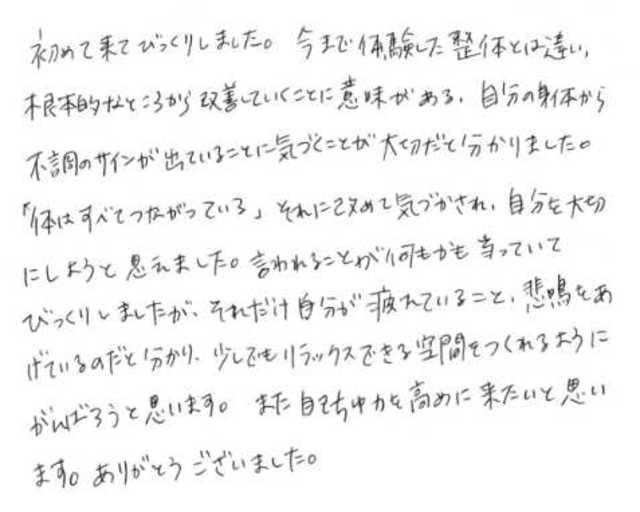 初めて来てびっくりしました。今まで体験した整体とは違い、
根本的なところから改善していくことに意味がある、自分の身体から
不調のサインが出ていることに気づくことが大切だと分かりました。
「体はすべてつながっている」それに改めて気づかされ、自分を大切
にしようと思えました。言われることが何もかも当っていて
びっくりしましたが、それだけ自分が疲れていること、悲鳴をあ
げているのだと分かり、少しでもリラックスできる空間をつくれるように
がんばろうと思います。また自己ちゆ力を高めに来たいと思い
ます。ありがとうございました。